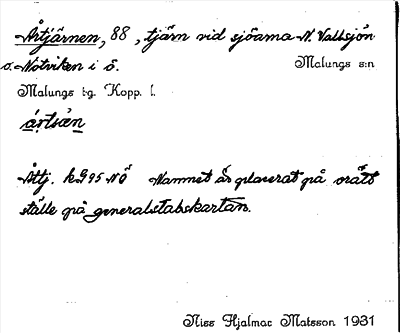 Årtjärnen, 88, tjärn vid sjöarna N. Vallsjön
o. Notviken i ö. Malungs s:n
Malungs tg. Kopp. l.
ártṣàn
Åttj. k G95 NÖ Namnet är placerat på orätt
ställe på generalstabskartan.
Niss Hjalmar Matsson 1931